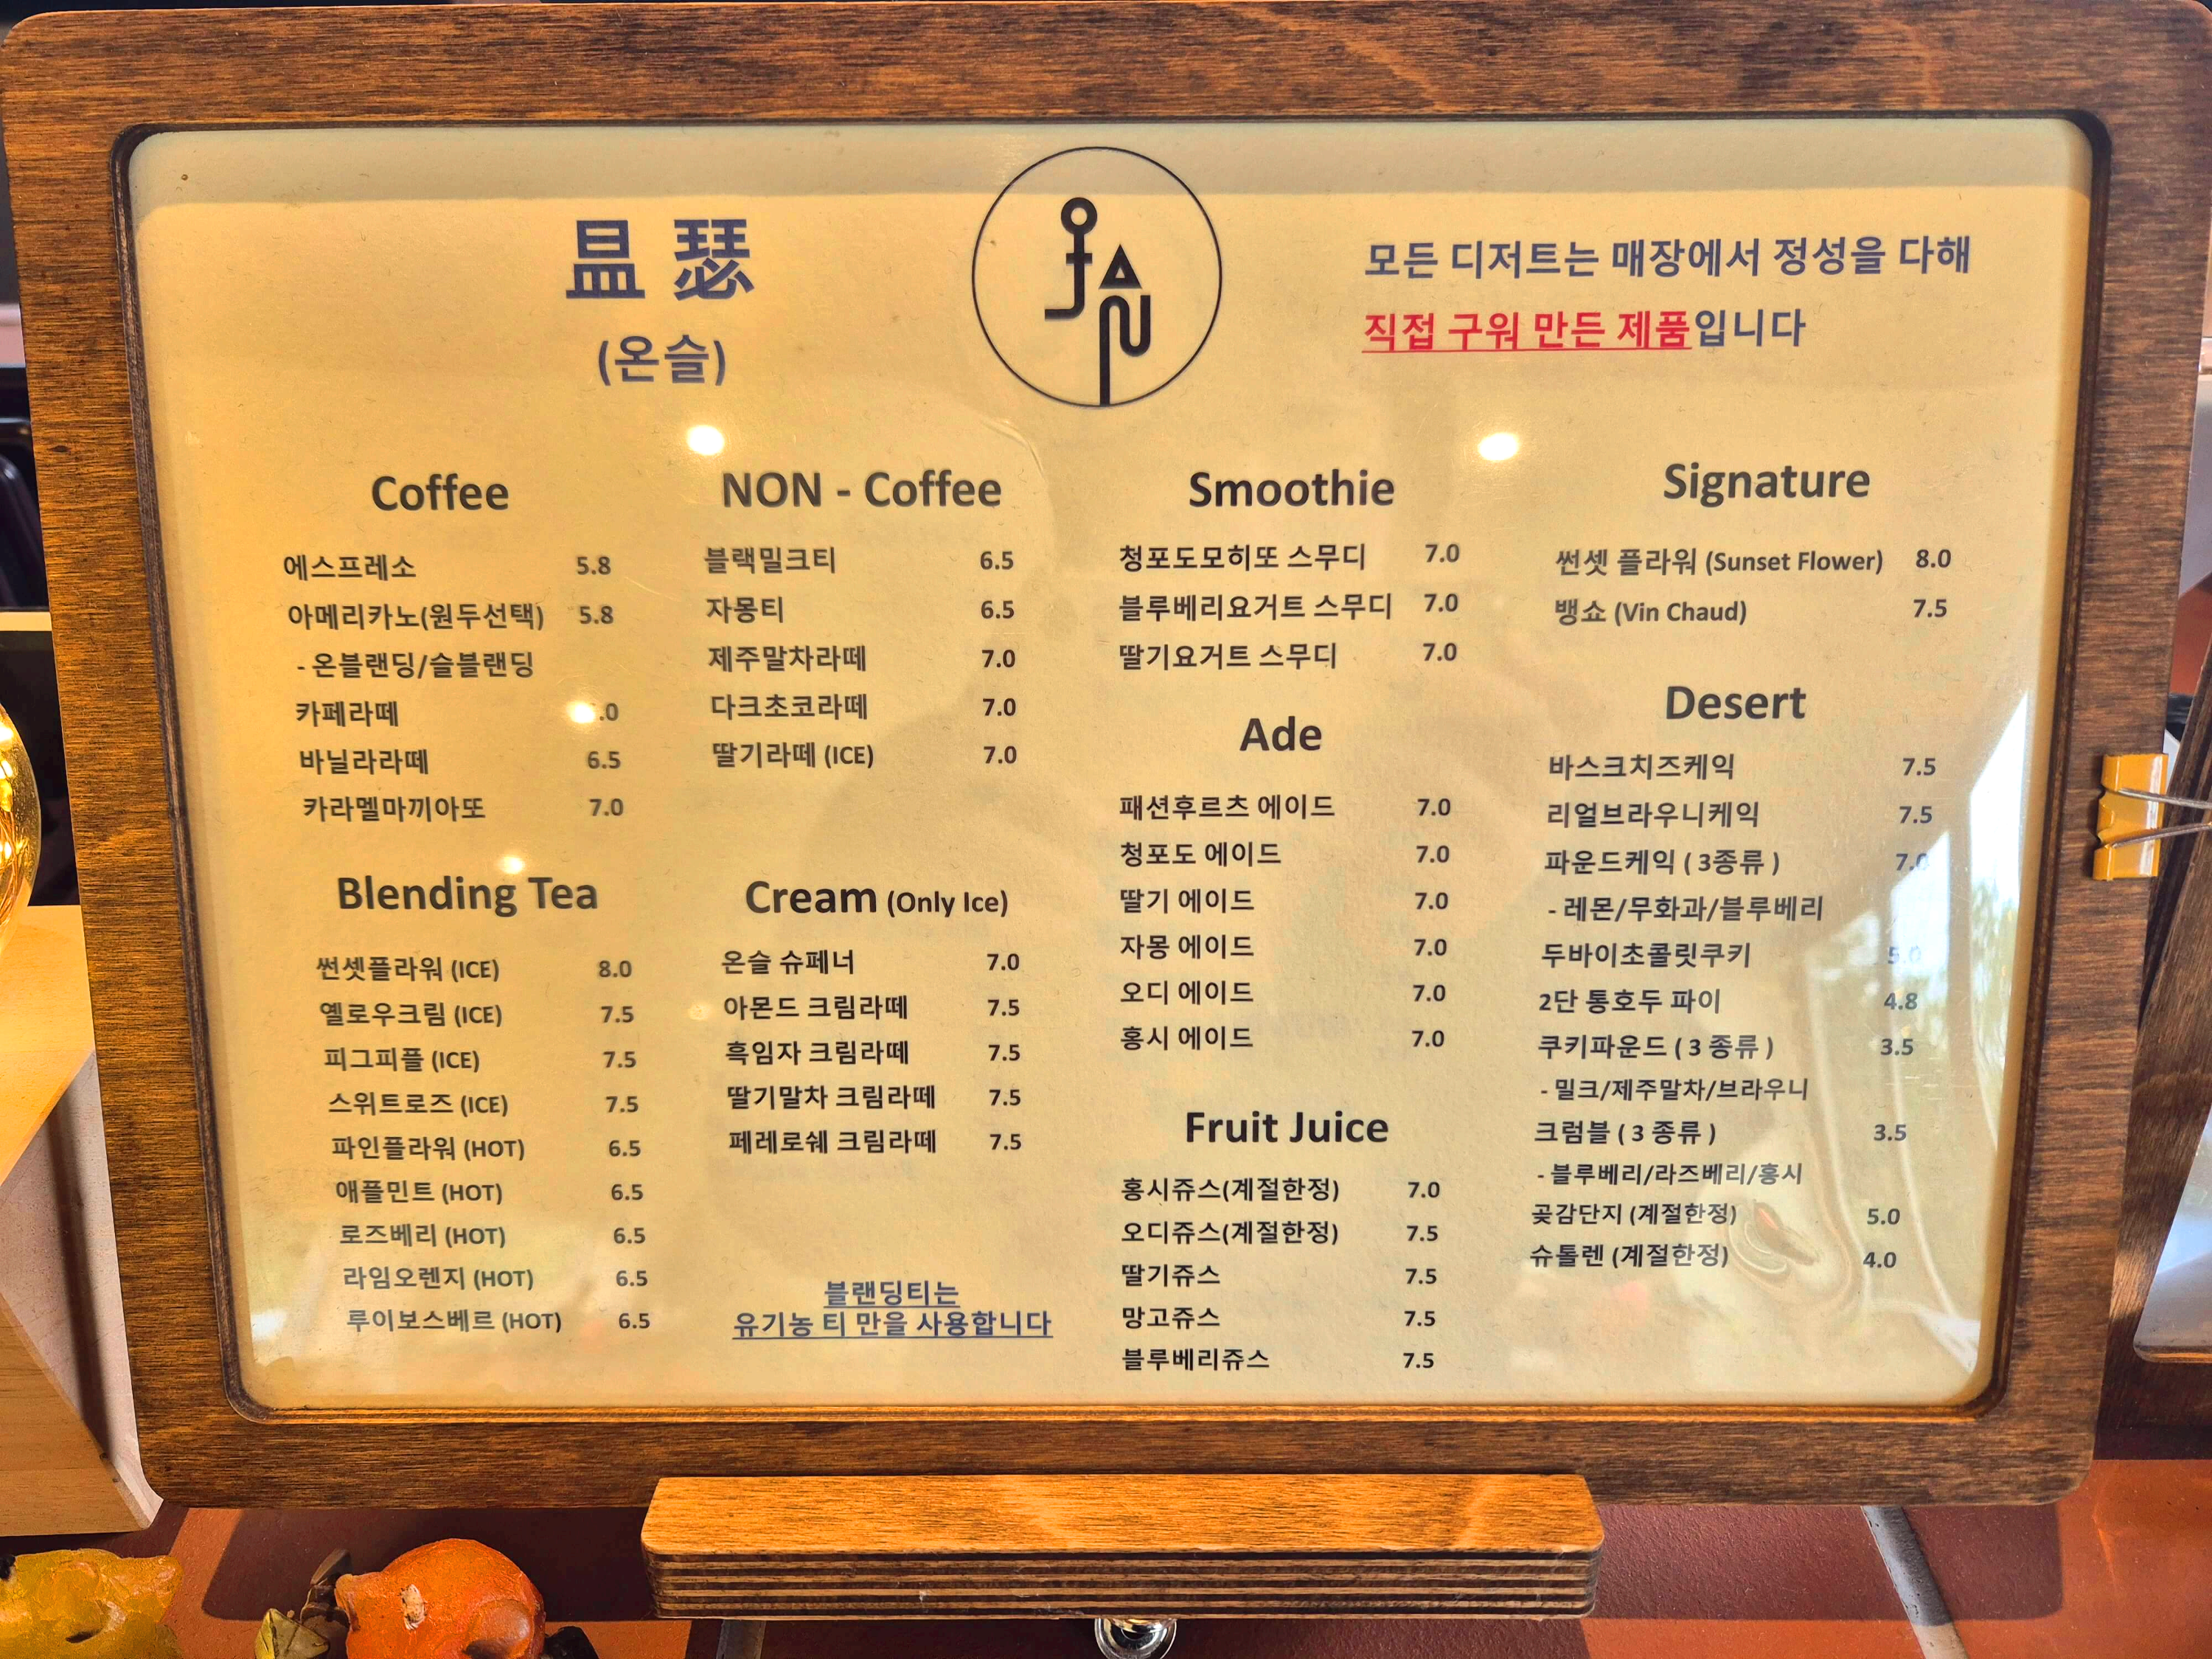 昷 瑟
(온슬)
모든 디저트는 매장에서 정성을 다해
직접 구워 만든 제품입니다
Coffee
에스프레소 5.8
아메리카노(원두선택) 5.8
- 온블랜딩/슬블랜딩
카페라떼
바닐라라떼 6.5
카라멜마끼아또 7.0
Blending Tea
썬셋플라워 (ICE) 8.0
옐로우크림 (ICE) 7.5
피그피플 (ICE) 7.5
스위트로즈 (ICE) 7.5
파인플라워 (HOT) 6.5
애플민트 (HOT) 6.5
로즈베리 (HOT) 6.5
라임오렌지 (HOT) 6.5
루이보스베르 (HOT) 6.5
NON - Coffee
블랙밀크티 6.5
자몽티 6.5
제주말차라떼 7.0
다크초코라떼 7.0
딸기라떼 (ICE) 7.0
Cream (Only Ice)
온슬 슈페너 7.0
아몬드 크림라떼 7.5
흑임자 크림라떼 7.5
딸기말차 크림라떼 7.5
페레로쉐 크림라떼 7.5
블랜딩티는
유기농 티 만을 사용합니다
Smoothie
청포도모히또 스무디 7.0
블루베리요거트 스무디 7.0
딸기요거트 스무디 7.0
Ade
패션후르츠 에이드 7.0
청포도 에이드 7.0
딸기 에이드 7.0
자몽 에이드 7.0
오디 에이드 7.0
홍시 에이드 7.0
Fruit Juice
홍시쥬스(계절한정) 7.0
오디쥬스(계절한정) 7.5
딸기쥬스 7.5
망고쥬스 7.5
블루베리쥬스 7.5
Signature
썬셋 플라워 (Sunset Flower) 8.0
뱅쇼 (Vin Chaud) 7.5
Desert
바스크치즈케익 7.5
리얼브라우니케익 7.5
파운드케익 ( 3종류 ) 7.0
- 레몬/무화과/블루베리
두바이초콜릿쿠키 5.0
2단 통호두 파이 4.8
쿠키파운드 ( 3 종류 ) 3.5
- 밀크/제주말차/브라우니
크럼블 ( 3 종류 ) 3.5
- 블루베리/라즈베리/홍시
곶감단지 (계절한정) 5.0
슈톨렌 (계절한정) 4.0